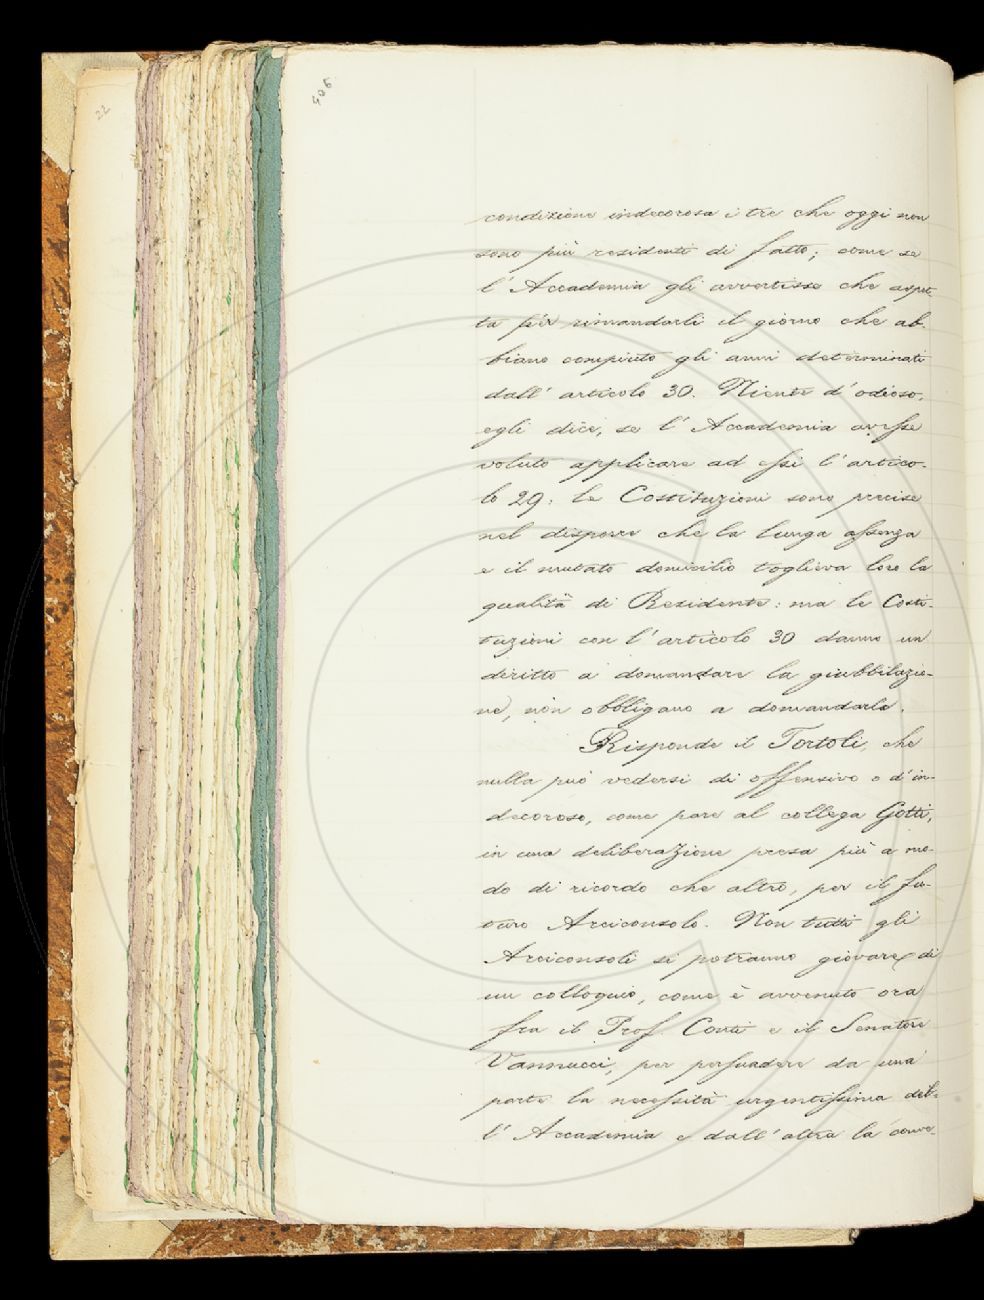 22
406
condizione indecorosa i tre che oggi non
sono più residenti di fatto; come se
l' Accademia gli avvertisse che aspet-
ta per rimandarli il giorno che ab-
biano compiuto gli anni determinati
dall' articolo 30. Niente d' odioso,
egli dice, se l' Accademia avesse
voluto applicare ad essi l' artico-
lo 29: le Costituzioni sono precise
nel disporre che la lunga assenza
e il mutato domicilio toglieva loro la
qualità di Residente: ma le Costi-
tuzioni con l' articolo 30 danno un
diritto a domandare la giubbilazio-
ne, non obbligano a domandarla.
Risponde il Tortoli, che
nulla può vedersi di offensivo o d' in-
decoroso, come pare al collega Gotti,
in una deliberazione presa più a mo-
do di ricordo che altro, per il fu-
turo Arciconsolo. Non tutti gli
Arciconsoli si potranno giovare di
un colloquio, come è avvenuto ora
fra il Prof. Conti e il Senatore
Vannucci, per persuadere da una
parte la necessità urgentissima del-
l' Accademia e dall' altra la conve-